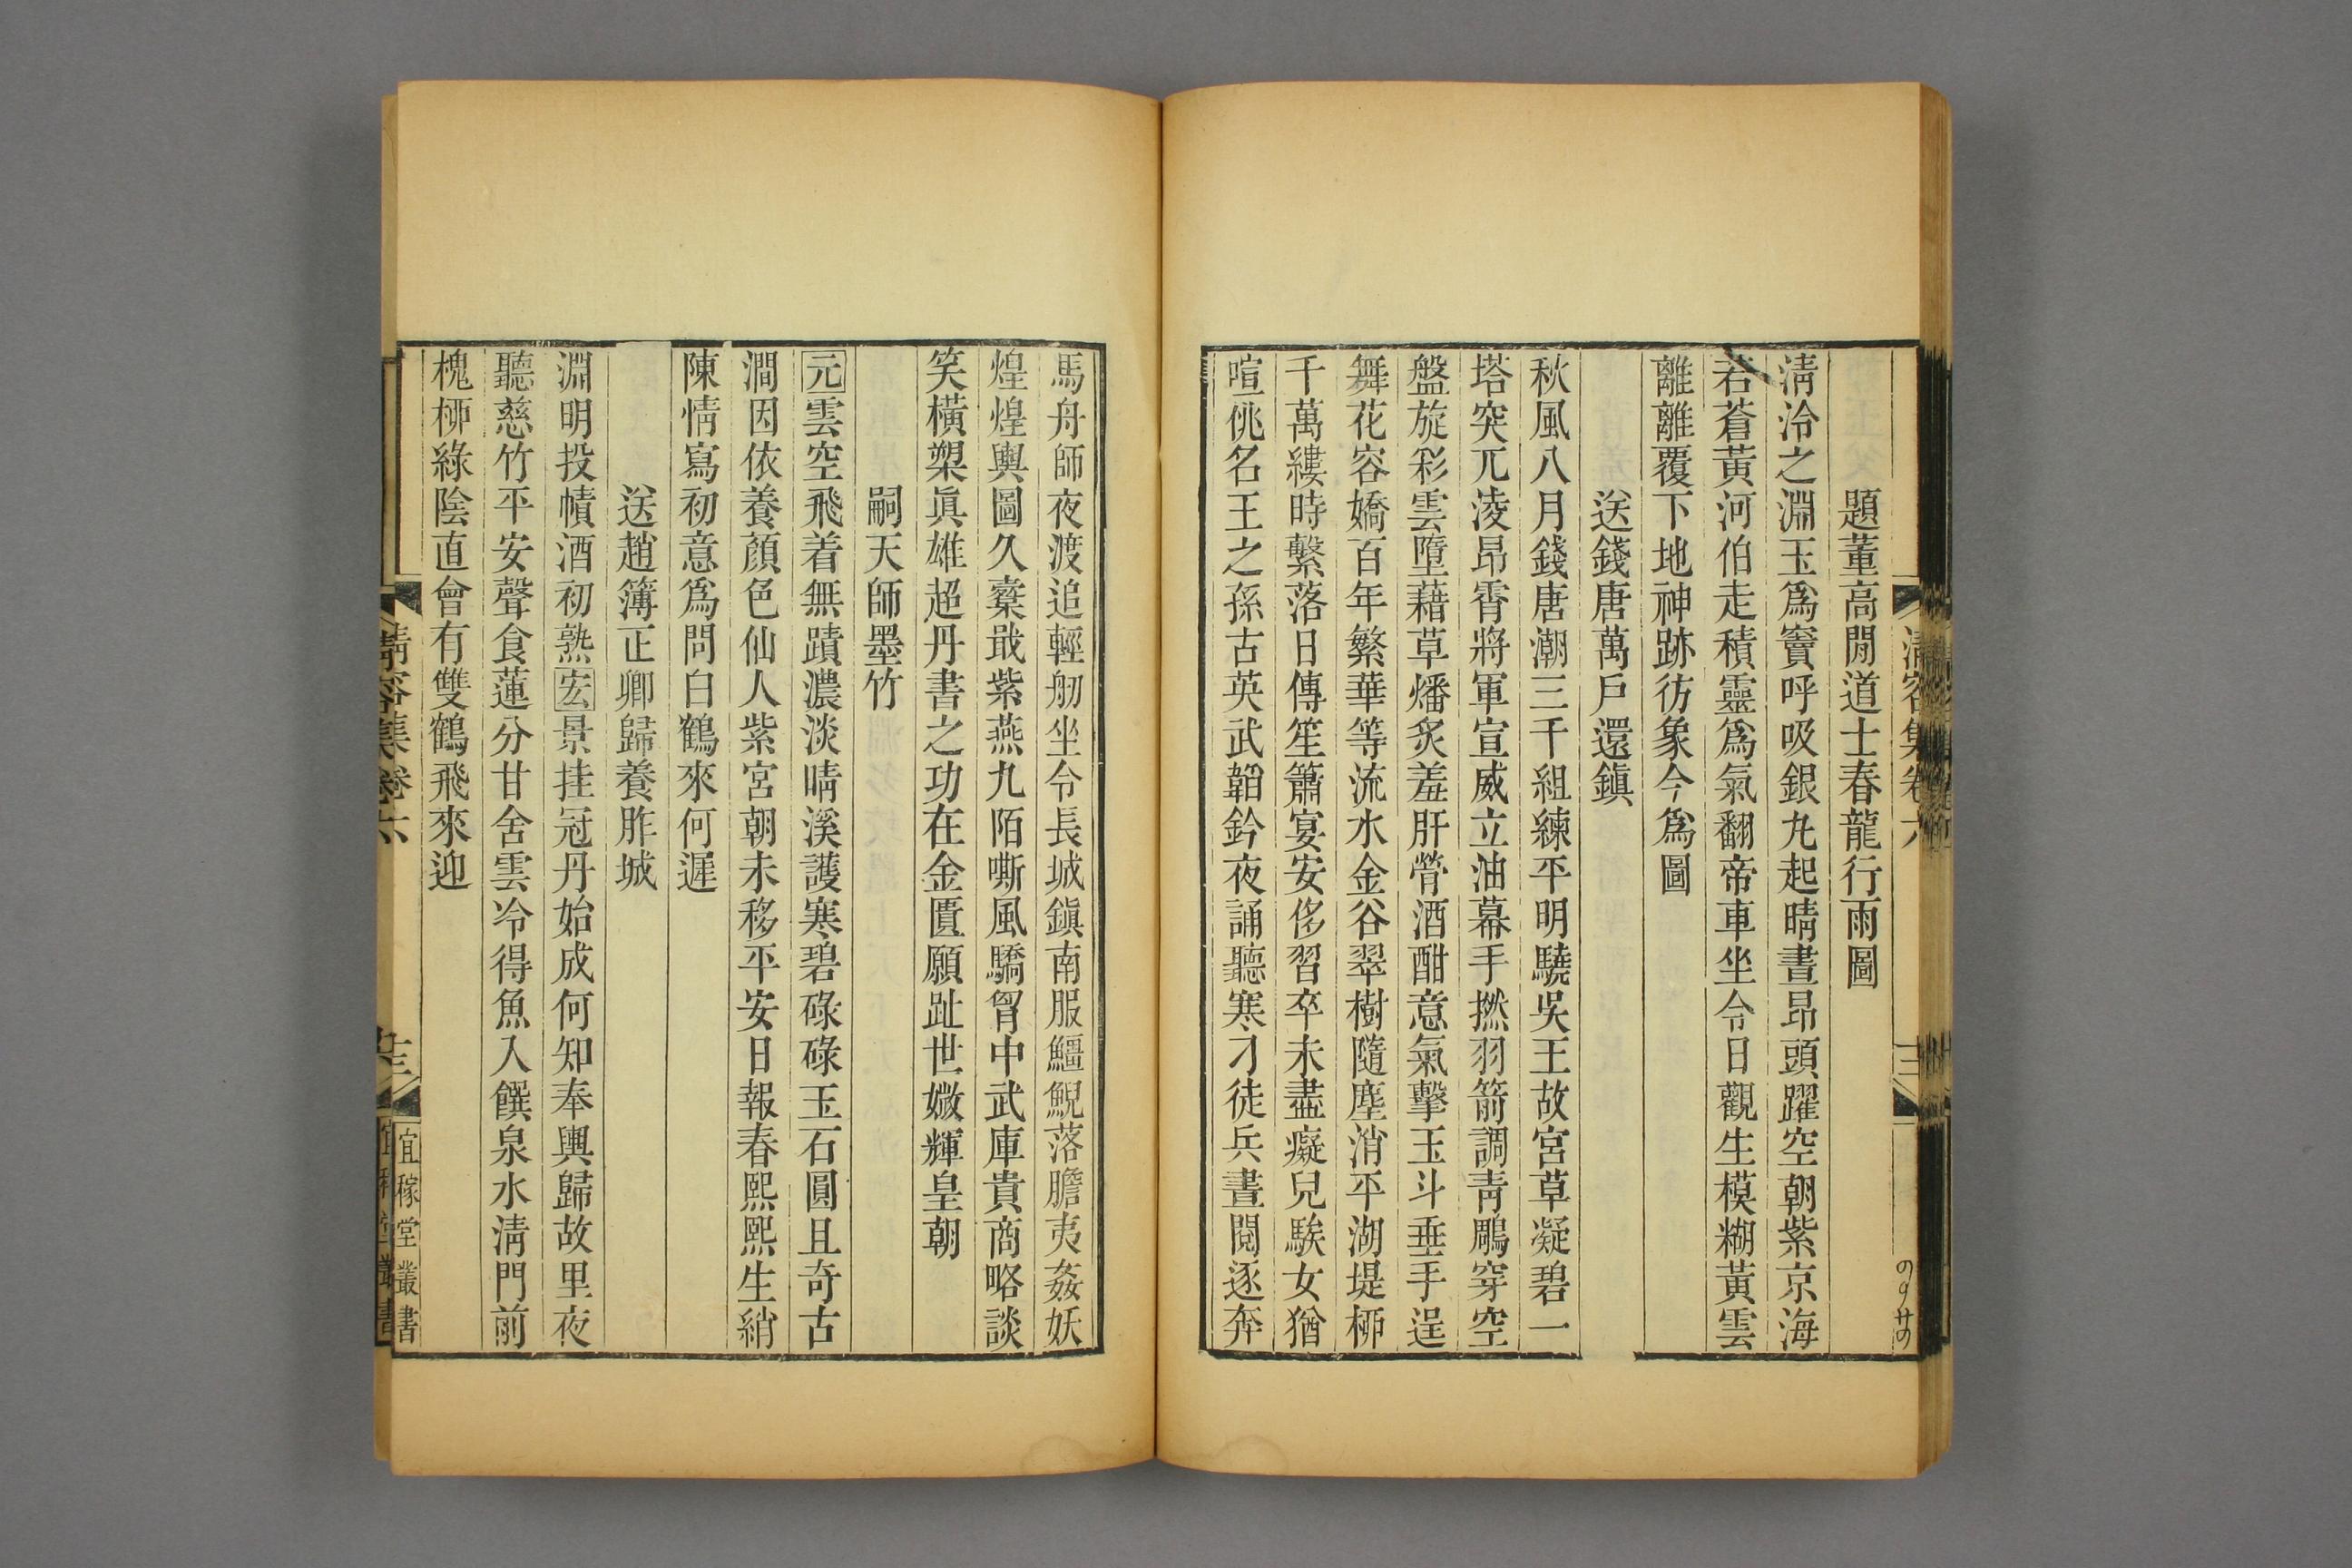 清容集卷六
三
題董高閒道士春龍行雨圖
清泠之淵玉爲竇呼吸銀丸起晴晝昂頭躍空朝紫京海
若蒼黃河伯走積靈爲氣翻帝車坐令日觀生模糊黃雲
離離覆下地神跡彷象今爲圖
送錢唐萬戶還鎭
秋風八月錢唐潮三千組練平明驍吳王故宮草凝碧一
塔突兀淩昂霄將軍宣威立油幕手撚羽箭調靑鵰穿空
盤旋彩雲墮藉草燔炙羞肝膋酒酣意氣擊玉斗垂手逞
舞花容嬌百年繁華等流水金谷翠樹隨塵消平湖堤桺
千萬縷時繫落日傳笙簫宴安侈習卒未盡癡兒騃女猶
喧佻名王之孫古英武韜鈐夜誦聽寒刁徒兵晝閱逐奔
馬舟師夜渡追輕舠坐令長城鎭南服鱷鯢落膽夷姦妖
煌煌輿圖久櫜戢紫燕九陌嘶風驕胷中武庫貴商略談
笑橫槊眞雄超丹書之功在金匱願趾世媺輝皇朝
嗣天師墨竹
元雲空飛着無蹟濃淡晴溪護寒碧碌碌玉石圓且奇古
澗因依養顏色仙人紫宮朝未移平安日報春熙熙生綃
陳情寫初意爲問白鶴來何遲
送趙簿正卿歸養胙城
淵明投幘酒初熟宏景挂冠丹始成何知奉輿歸故里夜
聽慈竹平安聲食蓮分甘舍雲冷得魚入饌泉水淸門前
槐桺綠陰直會有雙鶴飛來迎
清容集卷六
三
宜稼堂叢書